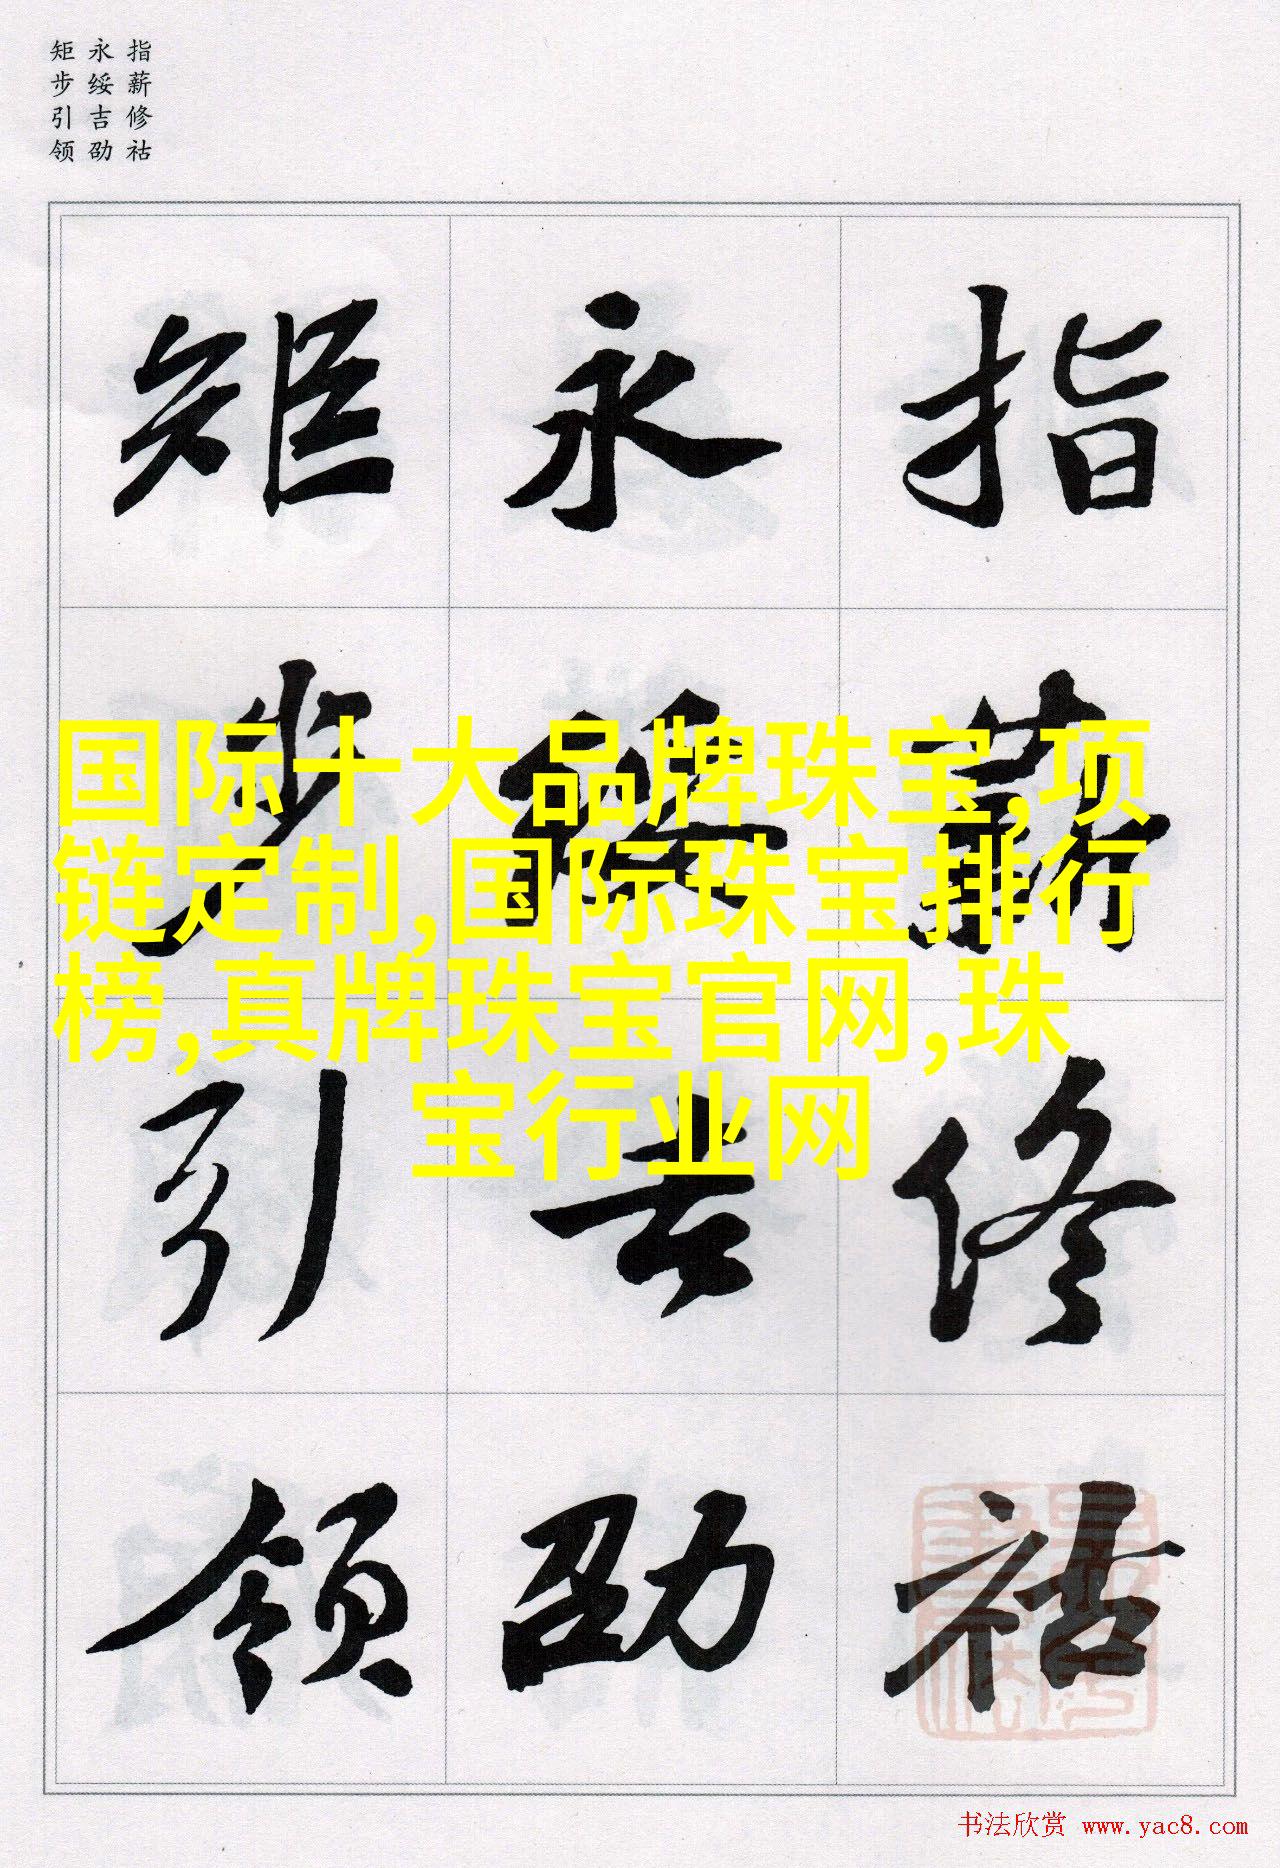 指薪修祜
永绥吉劭
矩步引领
指薪修祜
永绥吉劭
矩步引领
国际十大品牌珠宝,项
链定制,国际珠宝排行
榜,真牌珠宝官网,珠
宝行业网
书法欣赏 www.yac8.com